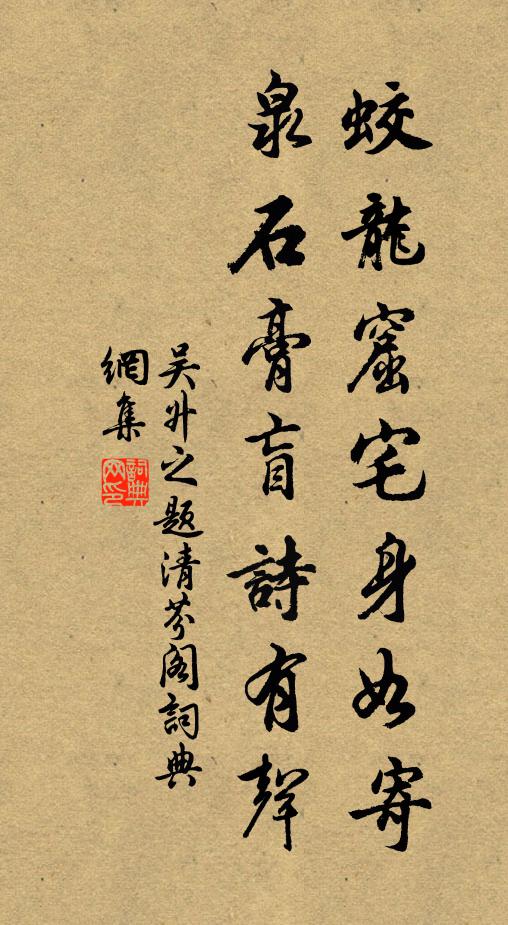 蛟龍窟宅身如寄
泉石膏肓詩有聲
吴升之题清芬阁詞典
網集
詞典
网印